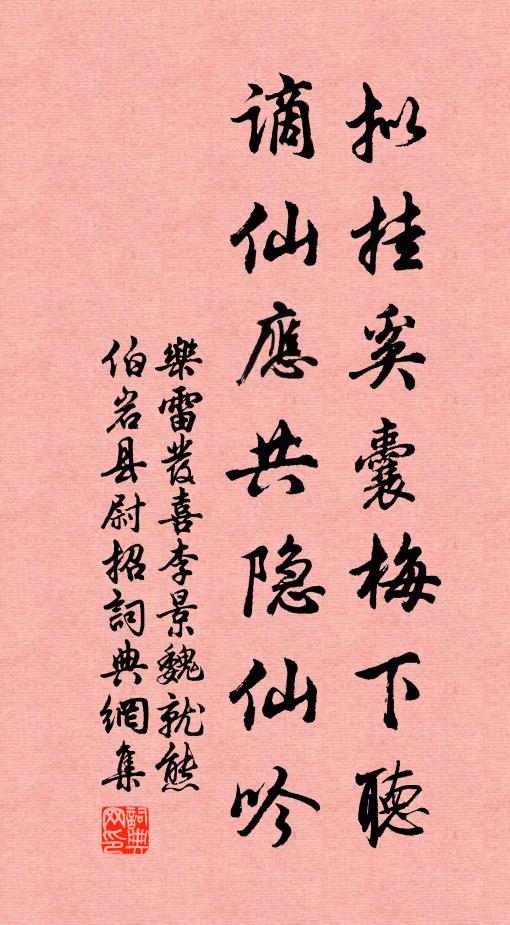 拟挂奚囊梅下聽
謫仙應共隐仙吟
樂雷發喜李景魏就熊
伯岩县尉招詞典網集
詞典网印